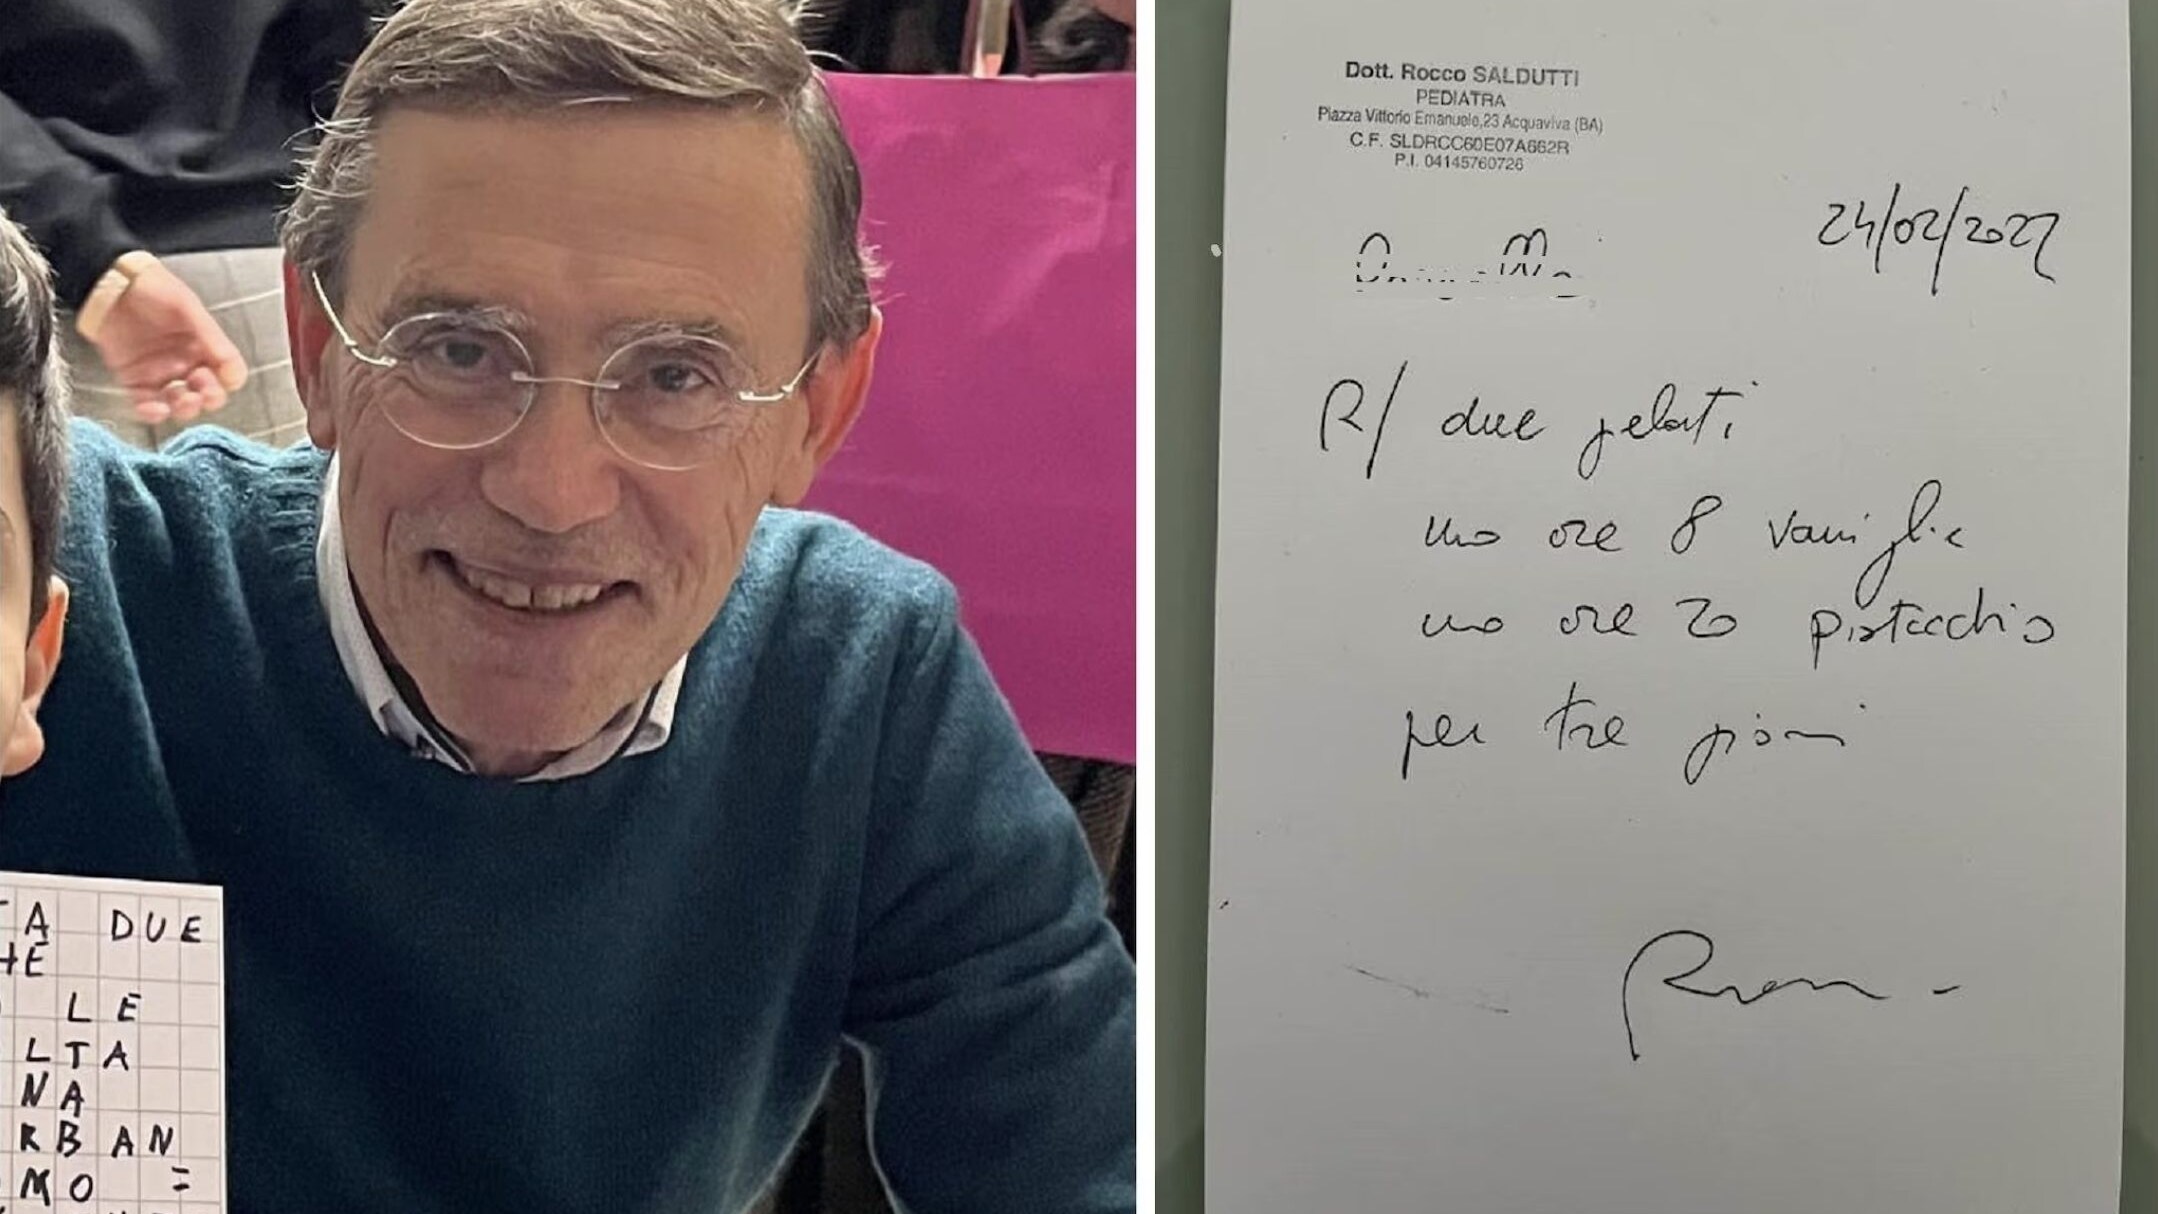 A DUE
HE
LE
LTA
NA
RBAN
MO =
Dott. Rocco SALDUTTI
PEDIATRA
Piazza Vittorio Emanuele,23 Acquaviva (BA)
C.F. SLDRCC60E07A662R
P.I. 04145760726
24/02/2022
R/ due gelati
uno ore 8 vaniglia
uno ore 20 pistacchio
per tre giorni